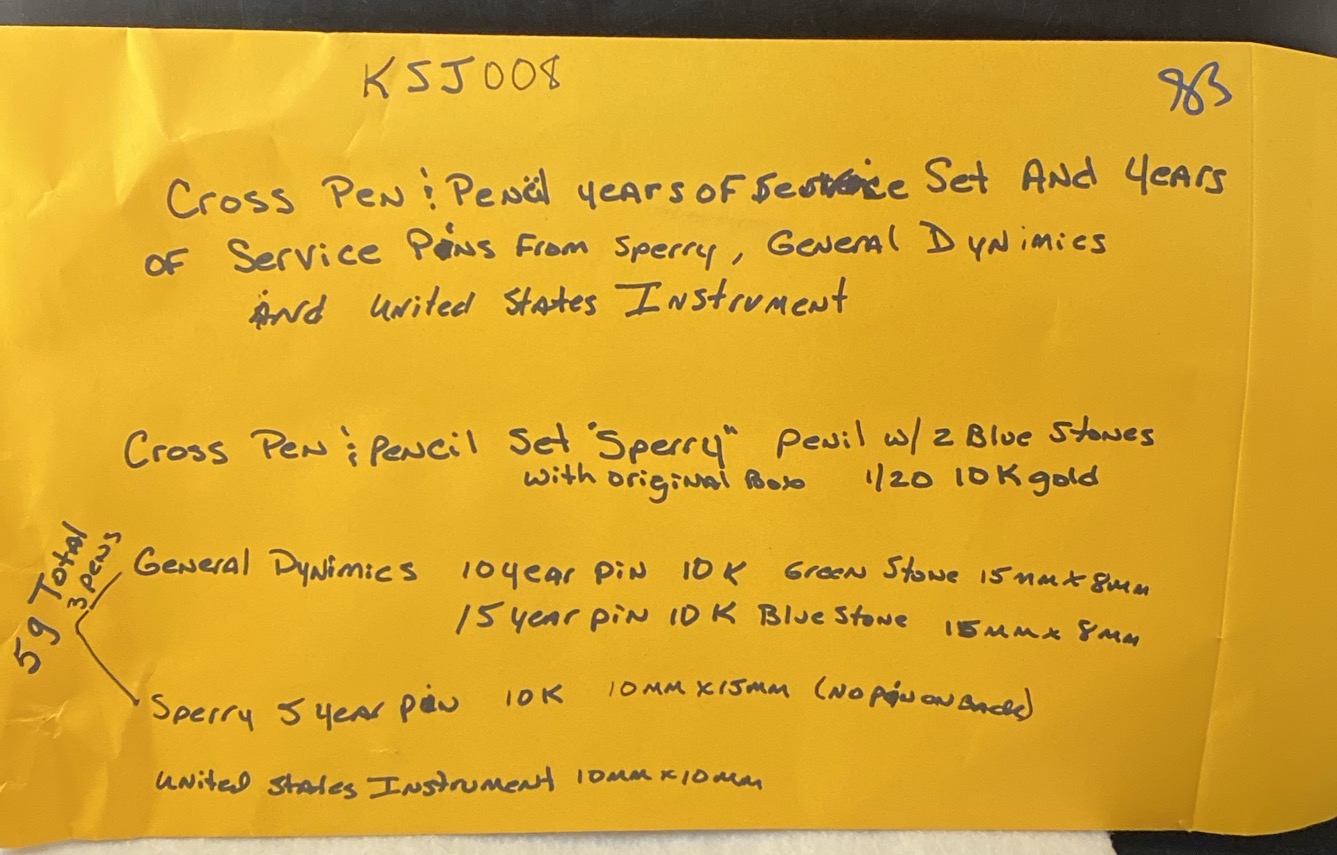 KSJ008
983
Cross Pen & Pencil years of Service Set And Years
of Service Pins From Sperry, General Dynimics
And United States Instrument
Cross Pen & Pencil Set "Sperry" Penil w/ 2 Blue Stones
with original Box 1/20 10K gold
General Dynimics 10 year pin 10K Green Stone 15mm x 8mm
15 year pin 10K Blue Stone 15mm x 8mm
5g Total
3 pens
Sperry 5 year pin 10K 10mm x 15mm (No pin on Back)
United States Instrument 10mm x 10mm